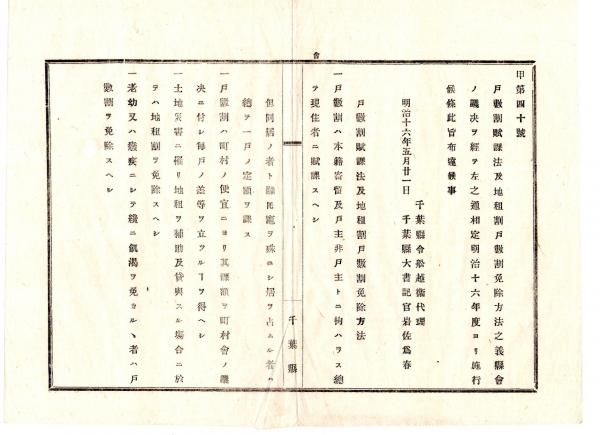 甲第四十號
戸數割賦課法及地租割戸數割免除方法之義縣會
ノ議决ヲ經テ左之通相定明治十六年度ヨリ施行
候條此旨布達候事
明治十六年五月廿一日
千葉縣令船越衞代理
千葉縣大書記官岩佐爲春
戸數割賦課法及地租割戸數割免除方法
一戸數割ハ本籍寄留及戸主非戸主トニ拘ハラス總
テ現住者ニ賦課スヘシ
會
千葉縣
但同居ノ者ト雖𪜈竈ヲ殊ニシ居ヲ占ムル者ハ
總テ一戸ノ定額ヲ課ス
一戸數割ハ町村ノ便宜ニヨリ其課額ヲ町村會ノ議
决ニ付シ毎戸ノ差等ヲ立ツルヿヲ得ヘシ
一土地災害ニ罹リ地租ヲ補助及貸與スル塲合ニ於
テハ地租割ヲ免除スヘシ
一老幼又ハ癈疾ニシテ纔ニ飢渇ヲ免カルヽ者ハ戸
數割ヲ免除スヘシ